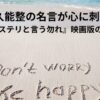 久能整の名言が心に刺
ステリと言う勿れ』映画版の
Don't worry
be happy